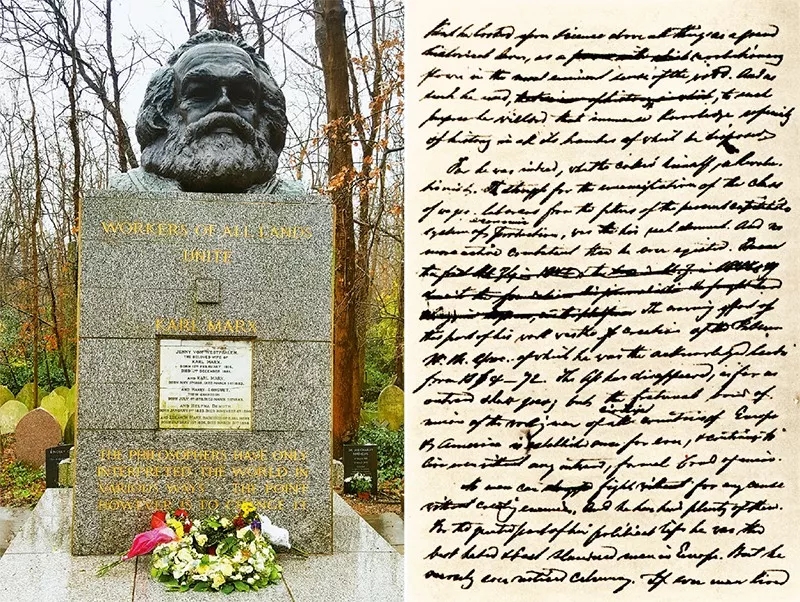 WORKERS OF ALL LANDS
UNITE
KARL MARX
JENNY VON WESTPHALEN,
THE BELOVED WIFE OF
KARL MARX,
BORN 12TH FEBRUARY 1814,
DIED 2ND DECEMBER 1881.
AND KARL MARX,
BORN MAY 5TH 1818; DIED MARCH 14TH 1883.
AND HARRY LONGUET,
THEIR GRANDSON,
BORN JULY 4TH 1878; DIED MARCH 20TH 1883.
AND HELENA DEMUTH,
THE PHILOSOPHERS HAVE ONLY
INTERPRETED THE WORLD IN
VARIOUS WAYS · THE POINT
HOWEVER IS TO CHANGE IT
But he looked upon science above all things as a grand
historical lever, as a revolutionary
power in the most eminent sense of the word. And as
such he used, to such
purpose he wielded that immense knowledge, especially
of history in all its branches of which he disposed
For he was indeed, what he called himself, a Revolu-
tionist. The struggle for the emancipation of the class
of wages-labourers from the fetters of the present capitalist
system of economic production, was his real element. And no
more active combatant than he ever existed.
The crowning effort of
this part of his work was the creation of the
W. M. Ass. of which he was the acknowledged leader
from 1864–72. The has disappeared, as far as
outward show goes; but the fraternal bond of
union of the working men of all civilized countries of Europe
& America is established once for ever, & continues to
live even without any outward, formal bond of union.
No man can fight for any cause
without creating enemies. And he has had plenty of them.
For the greater part of his political life he was the
best hated & best slandered man in Europe. But he
scarcely ever noticed calumny. If ever man lived